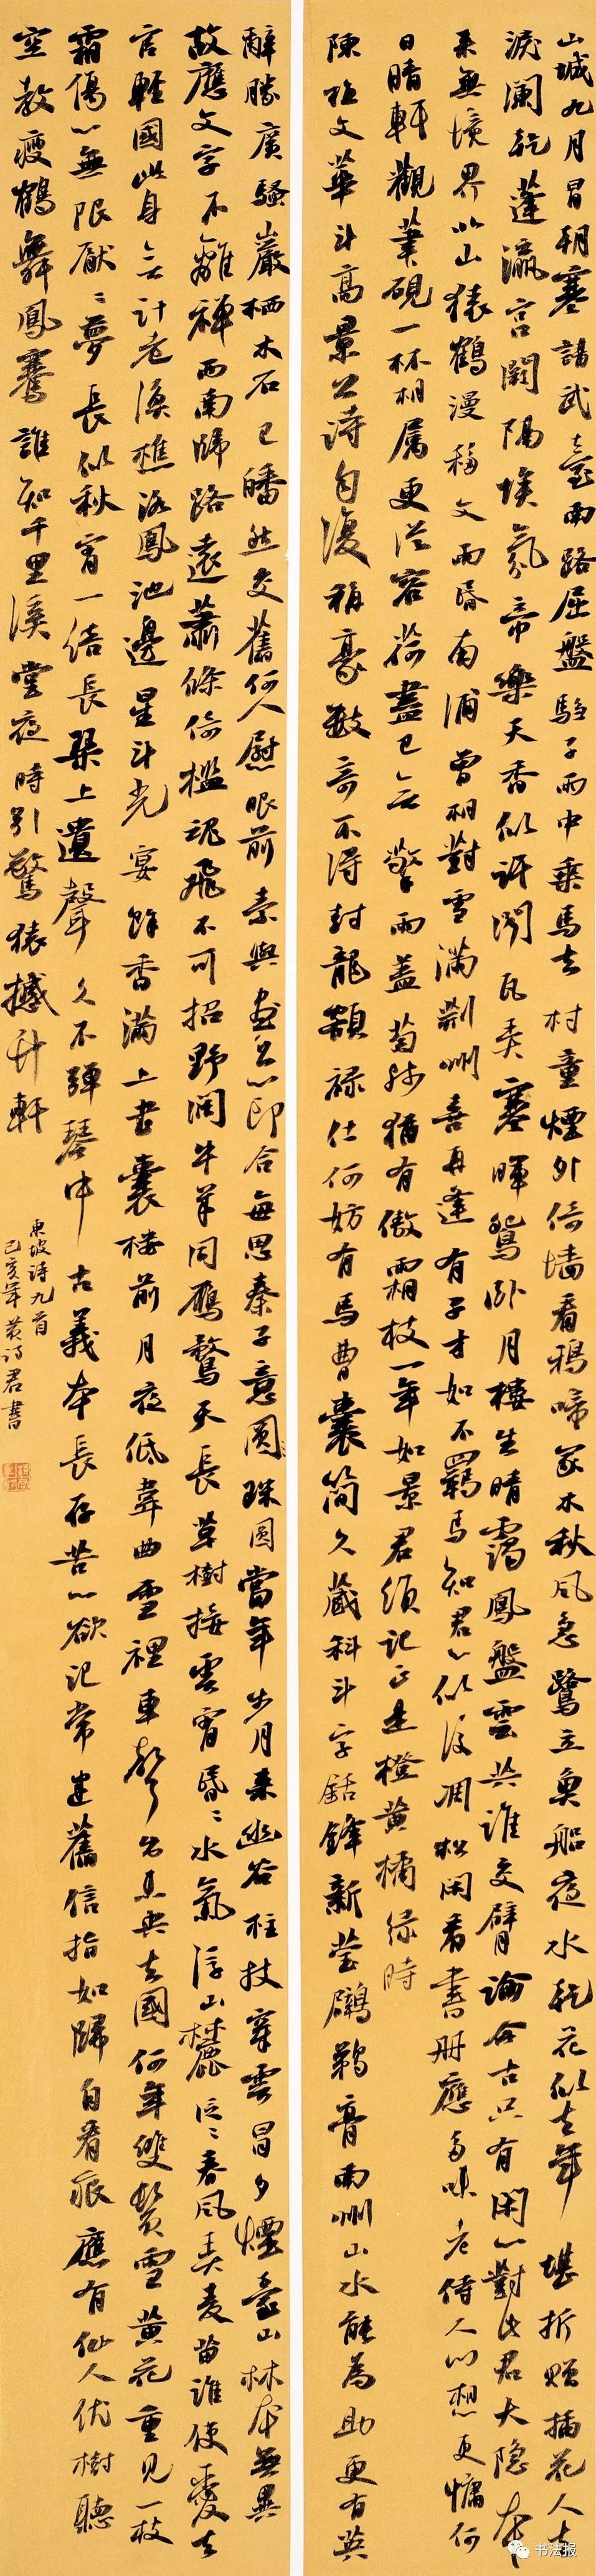 山城九月冒朔塞謁武臺南路屈盤駐子雨中乘馬去村童煙外倚墙看鴉啼家木秋風急鷺立魚船夜水乾花似去年堪折贈插花人去
淚闌乾蓬瀛宮闕隔埃氛帝樂天香似許聞瓦弄寒暉鴛卧月樓生晴靄鳳盤雲共誰交臂論今古只有閑心對此君大隱本
來無境界北山猿鶴漫移文雨昏南浦曾相對雪滿荊州喜再逢有子才如不羈馬知君心似後凋松閑看書册應多味老侍人心想更慵何
日晴軒觀筆硯一杯相屬更從容荷盡已無擎雨蓋菊殘猶有傲霜枝一年好景君須記正是橙黄橘綠時
陳班文華斗高景公詩自復稱豪數奇不得封龍額祿仕何妨有馬曹囊簡久藏科斗字銛鋒新瑩鸊鵜膏南州山水能為助更有英
辭勝廣騷巖栖木石已皤然交舊何人慰眼前素與畫公心印合每思秦子意圓珠圓當年步月來幽谷柱杖穿雲冒夕煙臺山林本無異
故應文字不離禪西南歸路遠蕭條倚檻魂飛不可招野闊牛羊同雁鶩天長草樹接雲霄昏昏水氣浮山麓泛泛春風弄麥苗誰使愛
官輕國此身無計老漁樵池鳳池邊星斗光宴餘香滿上書囊樓前月夜低韋曲雲裡車聲出未央去國何年雙鬢雪黄花重見一枝
霜傷心無限厭厭夢長似秋宵一倍長琴上遺聲久不彈琴中古義本長存苦心欲記常迷舊信指如歸自看痕應有仙人依樹聽
空教瘦鶴舞鳳騫誰知千里溪堂夜時引驚猿撼竹軒
東坡詩九首
己亥年黄詩君書
书法报